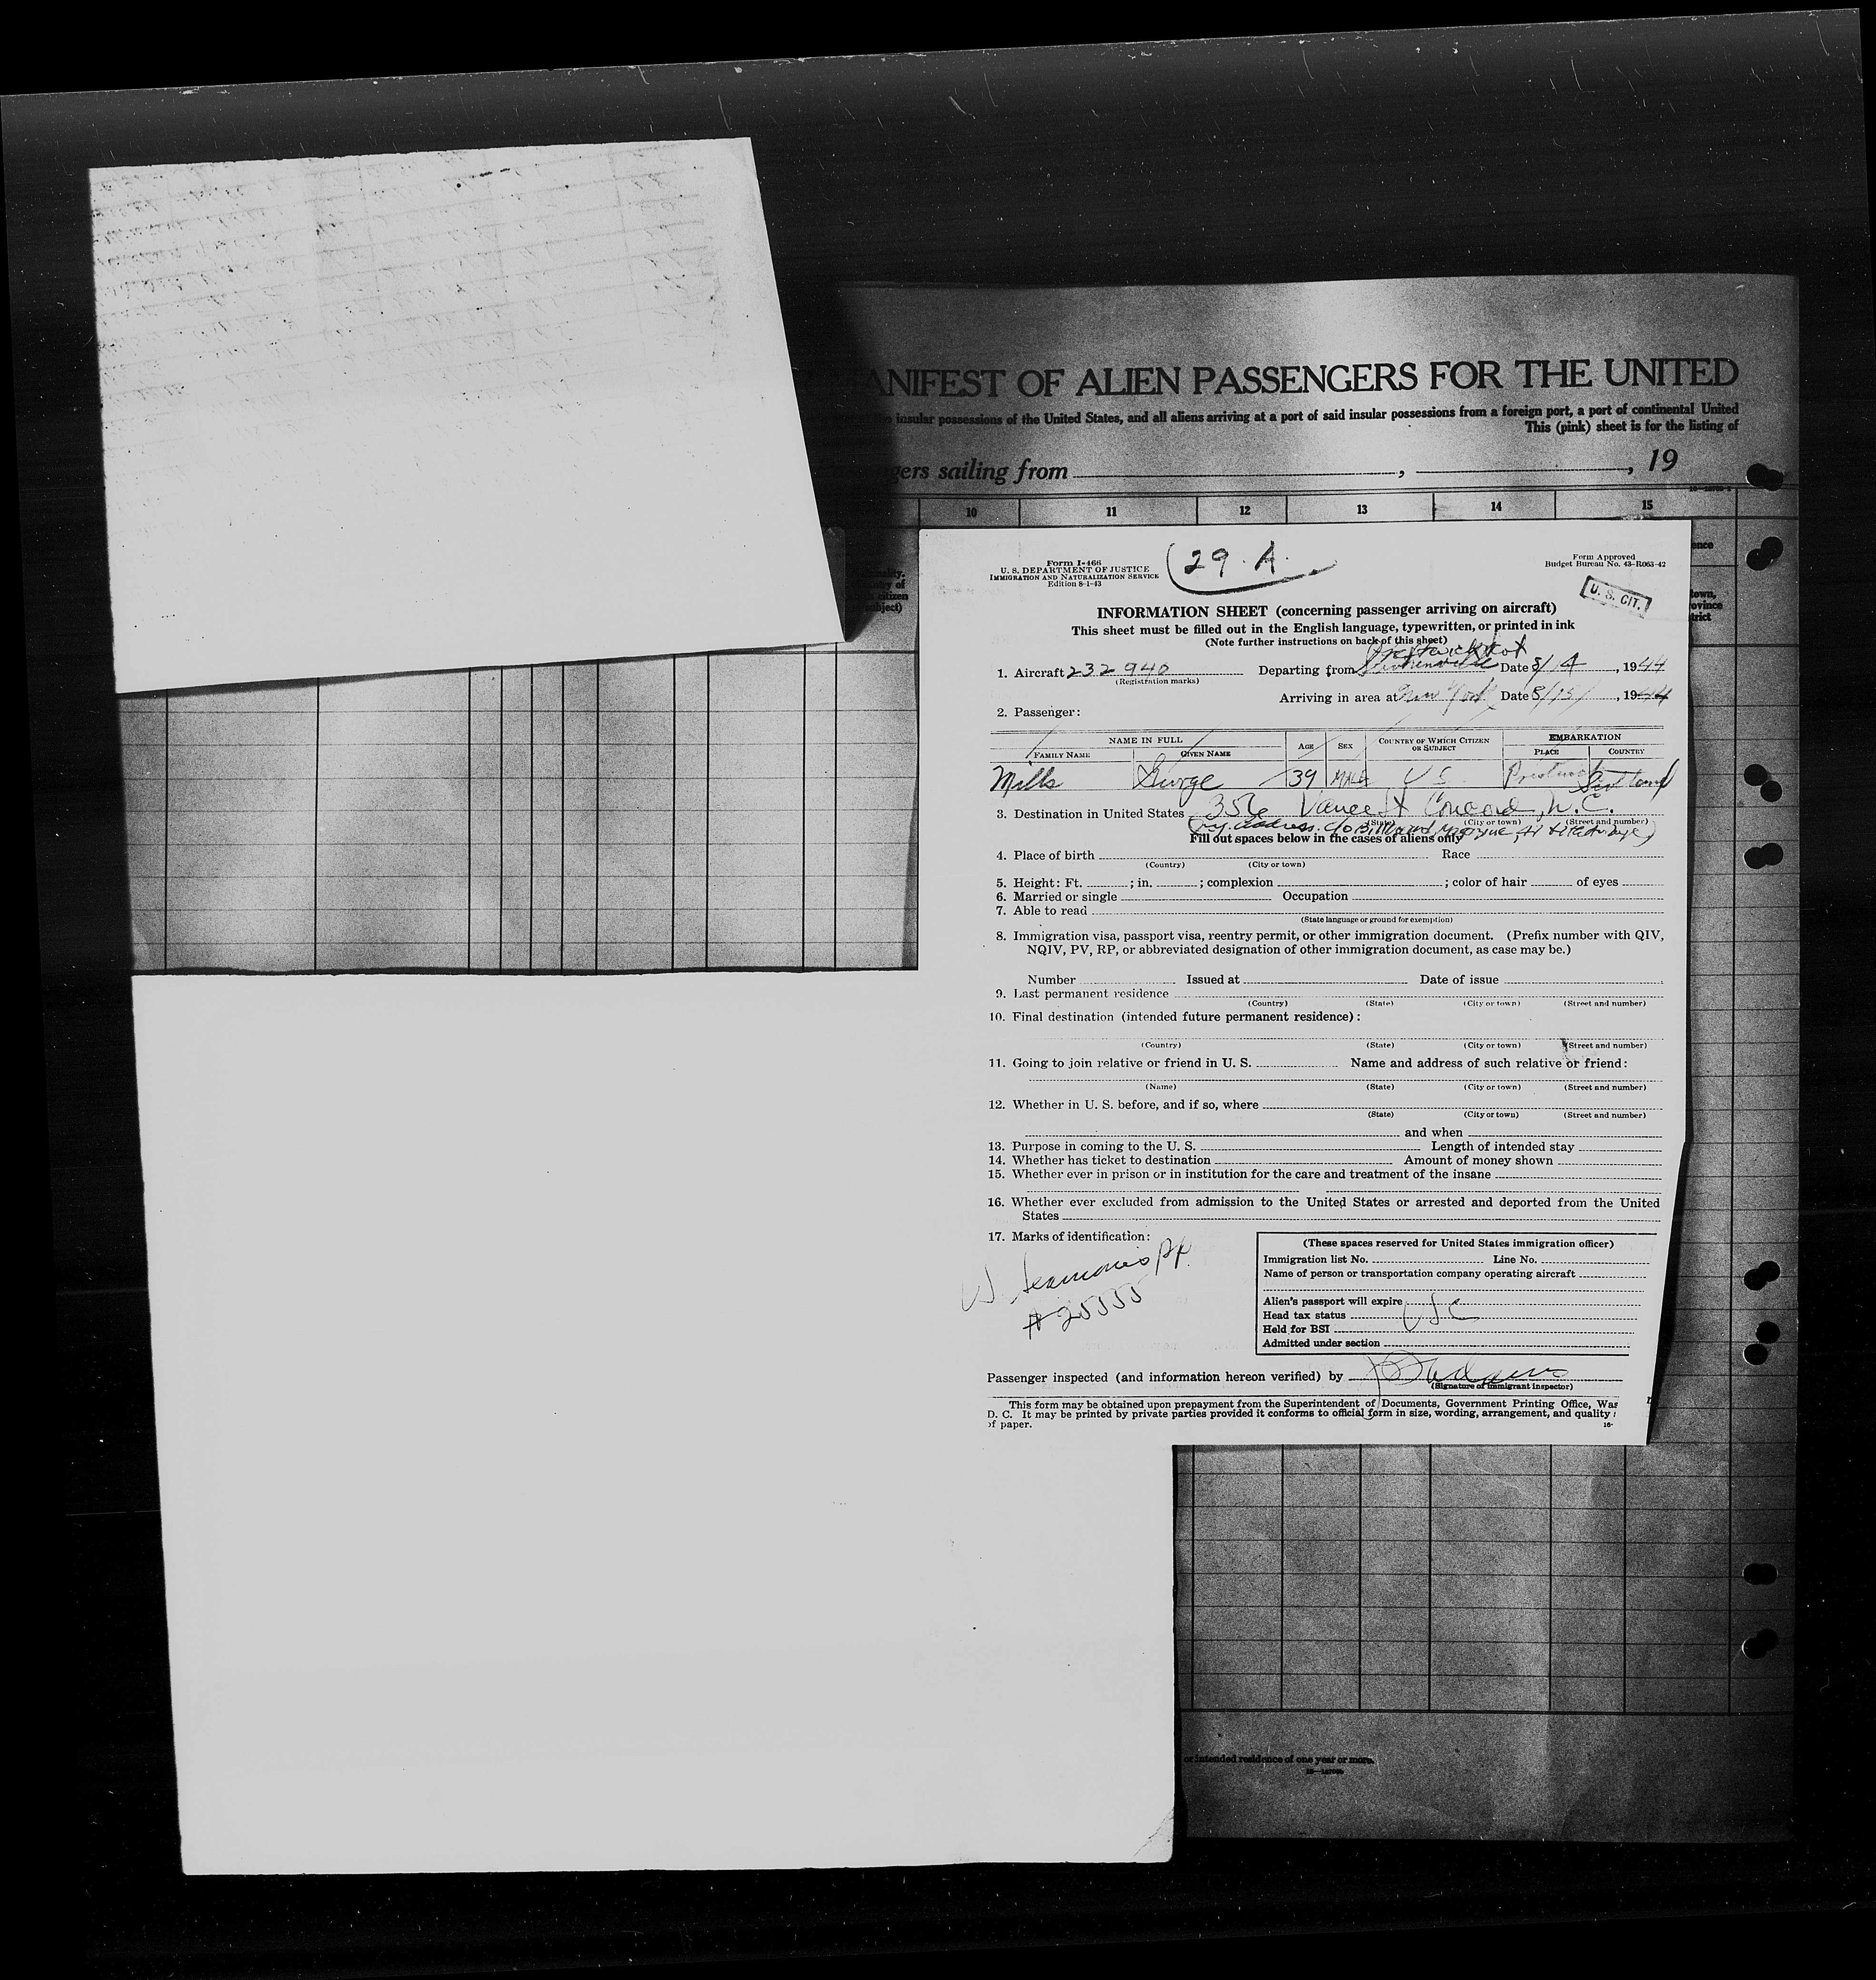 ANIFEST OF ALIEN PASSENGERS FOR THE UNITED
insular possessions of the United States, and all aliens arriving at a port of said insular possessions from a foreign port, a port of continental United
This (pink) sheet is for the listing of
gers sailing from , , 19
10 11 12 13 14 15
Form I-466
U. S. DEPARTMENT OF JUSTICE
IMMIGRATION AND NATURALIZATION SERVICE
Edition 8-1-43
29. A.
Form Approved
Budget Bureau No. 43-R063-42
U. S. CIT.
INFORMATION SHEET (concerning passenger arriving on aircraft)
This sheet must be filled out in the English language, typewritten, or printed in ink
(Note further instructions on back of this sheet)
1. Aircraft 232940 Departing from Stephenville Date 8/14, 1944
(Registration marks)
Arriving in area at New York Date 8/15/, 1944
2. Passenger:
NAME IN FULL AGE SEX COUNTRY OF WHICH CITIZEN OR SUBJECT EMBARKATION
FAMILY NAME GIVEN NAME PLACE COUNTRY
Mills George 39 MALE US Prestwick Scotland
3. Destination in United States 356 Vance St Concord, N.C.
(State) (City or town) (Street and number)
Fill out spaces below in the cases of aliens only
4. Place of birth Race
(Country) (City or town)
5. Height: Ft. ; in. ; complexion ; color of hair of eyes
6. Married or single Occupation
7. Able to read
(State language or ground for exemption)
8. Immigration visa, passport visa, reentry permit, or other immigration document. (Prefix number with QIV,
NQIV, PV, RP, or abbreviated designation of other immigration document, as case may be.)
Number Issued at Date of issue
9. Last permanent residence
(Country) (State) (City or town) (Street and number)
10. Final destination (intended future permanent residence):
(Country) (State) (City or town) (Street and number)
11. Going to join relative or friend in U. S. Name and address of such relative or friend:
(Name) (State) (City or town) (Street and number)
12. Whether in U. S. before, and if so, where
(State) (City or town) (Street and number)
and when
13. Purpose in coming to the U. S. Length of intended stay
14. Whether has ticket to destination Amount of money shown
15. Whether ever in prison or in institution for the care and treatment of the insane
16. Whether ever excluded from admission to the United States or arrested and deported from the United
States
17. Marks of identification:
#25555
(These spaces reserved for United States immigration officer)
Immigration list No. Line No.
Name of person or transportation company operating aircraft
Alien's passport will expire
Head tax status USC
Held for BSI
Admitted under section
Passenger inspected (and information hereon verified) by
(Signature of immigrant inspector)
This form may be obtained upon prepayment from the Superintendent of Documents, Government Printing Office, Was
D. C. It may be printed by private parties provided it conforms to official form in size, wording, arrangement, and quality
of paper.
16-
or intended residence of one year or more.